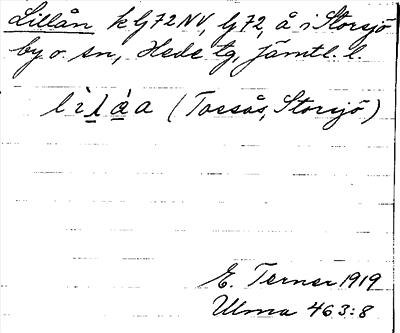 Lillån k G72NV, G72, å i Storsjö
by o. sn, Hede tg, Jämtl. l.
lìlåa (Tossås, Storsjö)
E. Terner 1919
Ulma 463:8